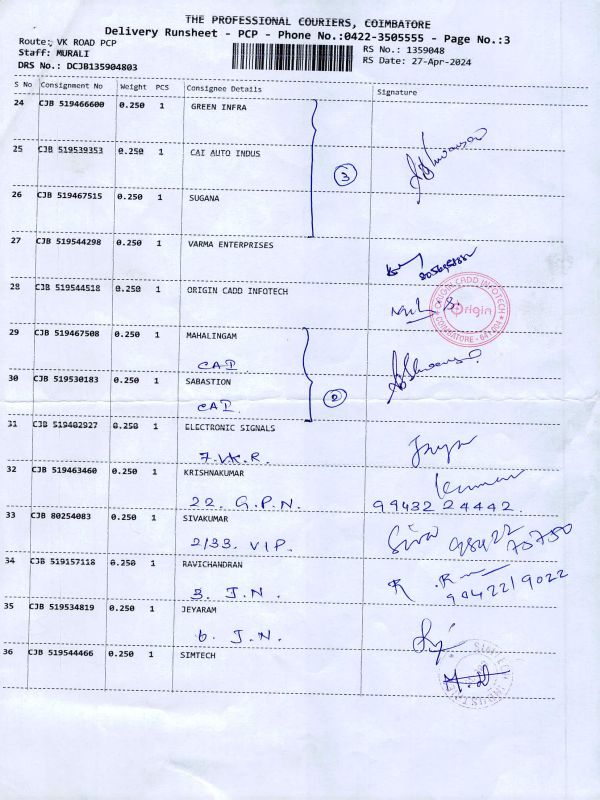 THE PROFESSIONAL COURIERS, COIMBATORE
Delivery Runsheet - PCP - Phone No.:0422-3505555 - Page No.:3
Route: VK ROAD PCP
Staff: MURALI
DRS No.: DCJB135904803
RS No.: 1359048
RS Date: 27-Apr-2024
S No Consignment No Weight PCS Consignee Details Signature
24 CJB 519466600 0.250 1 GREEN INFRA
25 CJB 519539353 0.250 1 CAI AUTO INDUS
3
26 CJB 519467515 0.250 1 SUGANA
27 CJB 519544298 0.250 1 VARMA ENTERPRISES
28 CJB 519544518 0.250 1 ORIGIN CADD INFOTECH
ORIGIN CADD INFOTECH
Origin
COIMBATORE - 641 004
29 CJB 519467508 0.250 1 MAHALINGAM
CAI
30 CJB 519530183 0.250 1 SABASTION
CAI
2
31 CJB 519402927 0.250 1 ELECTRONIC SIGNALS
7.V.K.R.
32 CJB 519463460 0.250 1 KRISHNAKUMAR
Kumar
22. G.P.N.
99432 24442.
33 CJB 80254083 0.250 1 SIVAKUMAR
2/33. V.I.P.
Siva 98422 70750
34 CJB 519157118 0.250 1 RAVICHANDRAN
3. J.N.
9042219022
35 CJB 519534819 0.250 1 JEYARAM
6. J.N.
36 CJB 519544466 0.250 1 SIMTECH